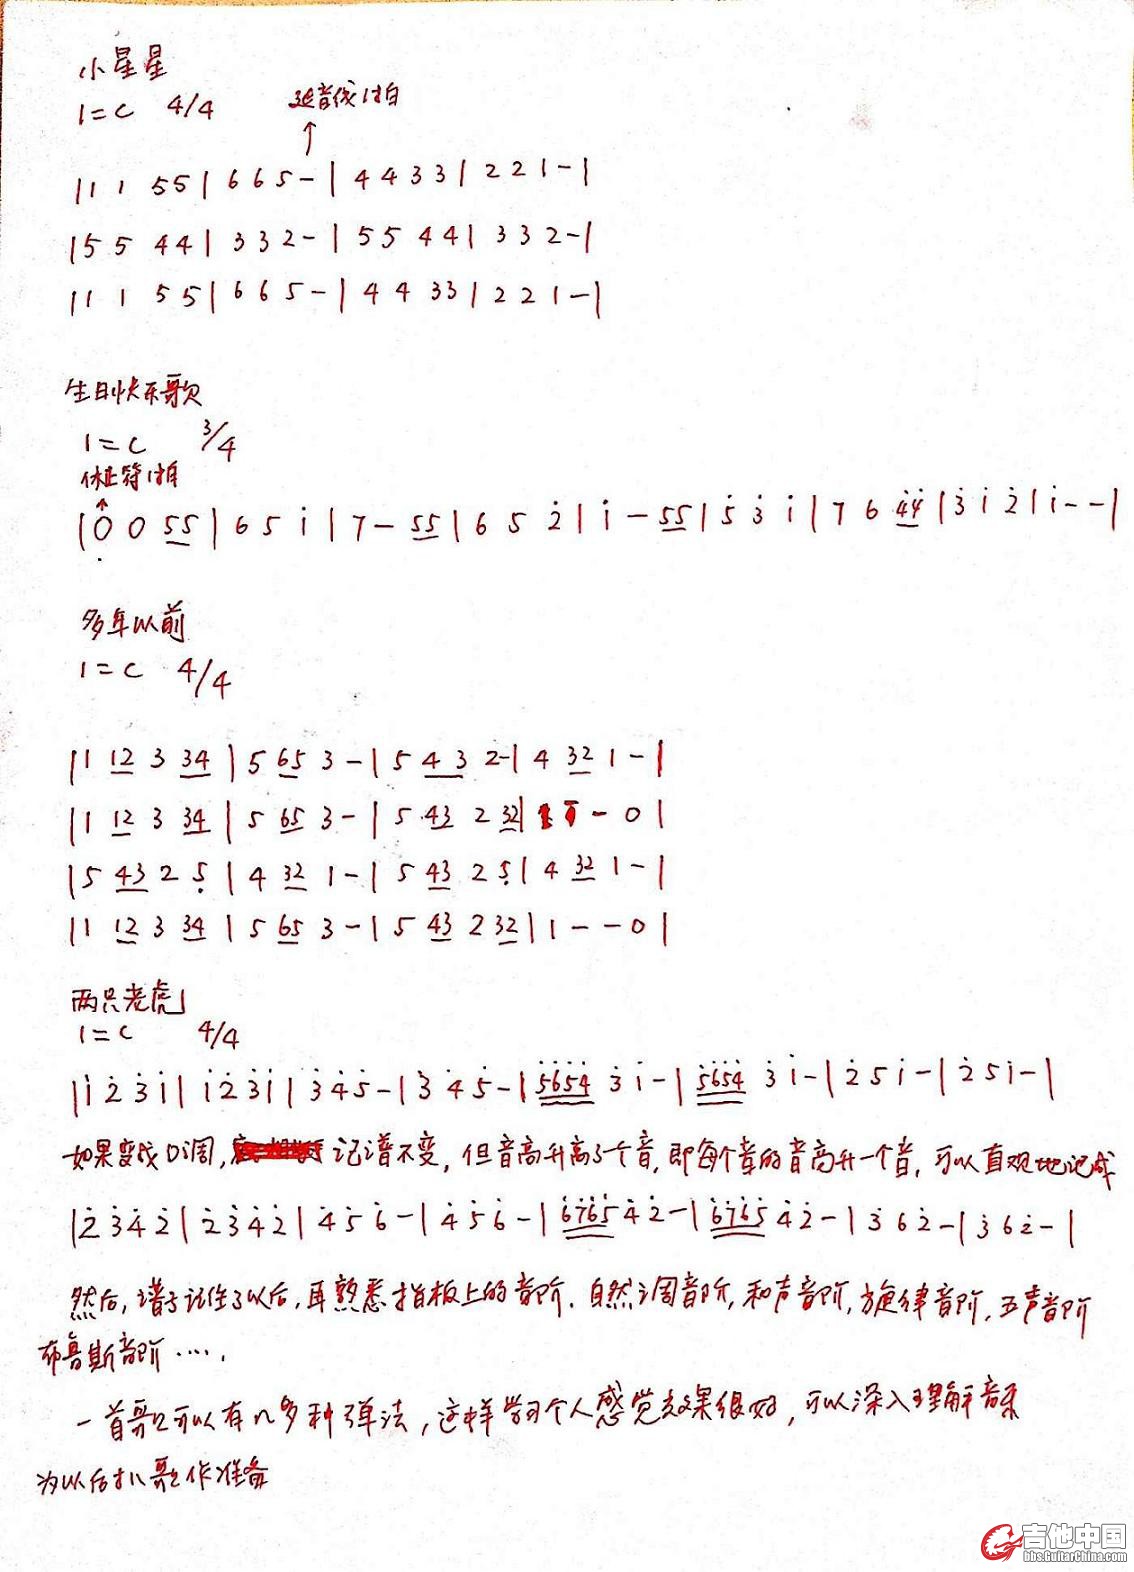 小星星
1=C 4/4 延音线1拍
↑
|1 1 55|6 6 5-|4 4 3 3|2 2 1-|
|5 5 44|3 3 2-|5 5 44|3 3 2-|
|1 1 5 5|6 6 5-|4 4 33|2 2 1-|
生日快乐歌
1=C 3/4
休止符1拍
↑
|0 0 5̲5̲|6 5 1̇|7-5̲5̲|6 5 2̇|1̇-5̲5̲|5̇ 3̇ 1̇|7 6 4̲̇4̲̇|3̇ 1̇ 2̇|1̇--|
多年以前
1=C 4/4
|1 1̲2̲ 3 3̲4̲|5 6̲5̲ 3-|5 4̲3̲ 2-|4 3̲2̲ 1-|
|1 1̲2̲ 3 3̲4̲|5 6̲5̲ 3-|5 4̲3̲ 2 3̲2̲|1 - - 0|
|5 4̲3̲ 2 5̣|4 3̲2̲ 1-|5 4̲3̲ 2 5̣|4 3̲2̲ 1-|
|1 1̲2̲ 3 3̲4̲|5 6̲5̲ 3-|5 4̲3̲ 2 3̲2̲|1--0|
两只老虎
1=C 4/4
|1̇ 2̇ 3̇ 1̇|1̇ 2̇ 3̇ 1̇|3̇ 4̇ 5̇-|3̇ 4̇ 5̇-|5̳̇6̳̇5̳̇4̳̇ 3̇ 1̇-|5̳̇6̳̇5̳̇4̳̇ 3̇ 1̇-|2̇ 5 1̇-|2̇ 5 1̇-|
如果变成D调,记谱不变,但音高升高了个音,即每个音的音高升一个音,可以直观地记成
|2̇ 3̇ 4̇ 2̇|2̇ 3̇ 4̇ 2̇|4̇ 5̇ 6̇-|4̇ 5̇ 6̇-|6̳̇7̳̇6̳̇5̳̇ 4̇ 2̇-|6̳̇7̳̇6̳̇5̳̇ 4̇ 2̇-|3̇ 6 2̇-|3̇ 6 2̇-|
然后,谱子记住了以后,再熟悉指板上的音阶.自然调音阶,和声音阶,旋律音阶,五声音阶
布鲁斯音阶…..
一首歌可以有几多种弹法,这样学习个人感觉效果很好,可以深入理解音乐
为以后扒歌作准备
吉他中国
bbs.GuitarChina.com